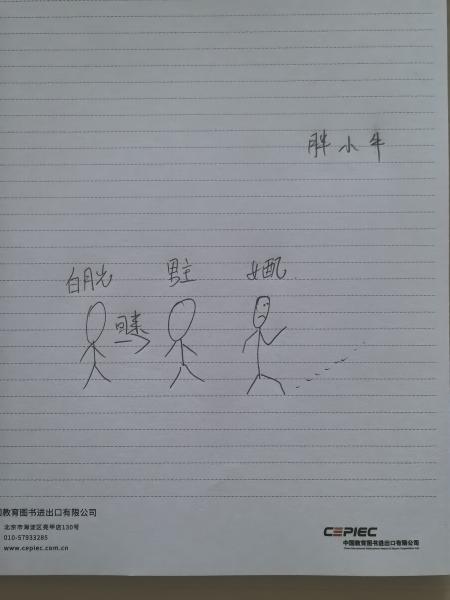 胖小牛
白月光 男主 女配
回来
国教育图书进出口有限公司
北京市海淀区亮甲店130号
010-57933285
www.cepiec.com.cn
CEPIEC
中国教育图书进出口有限公司